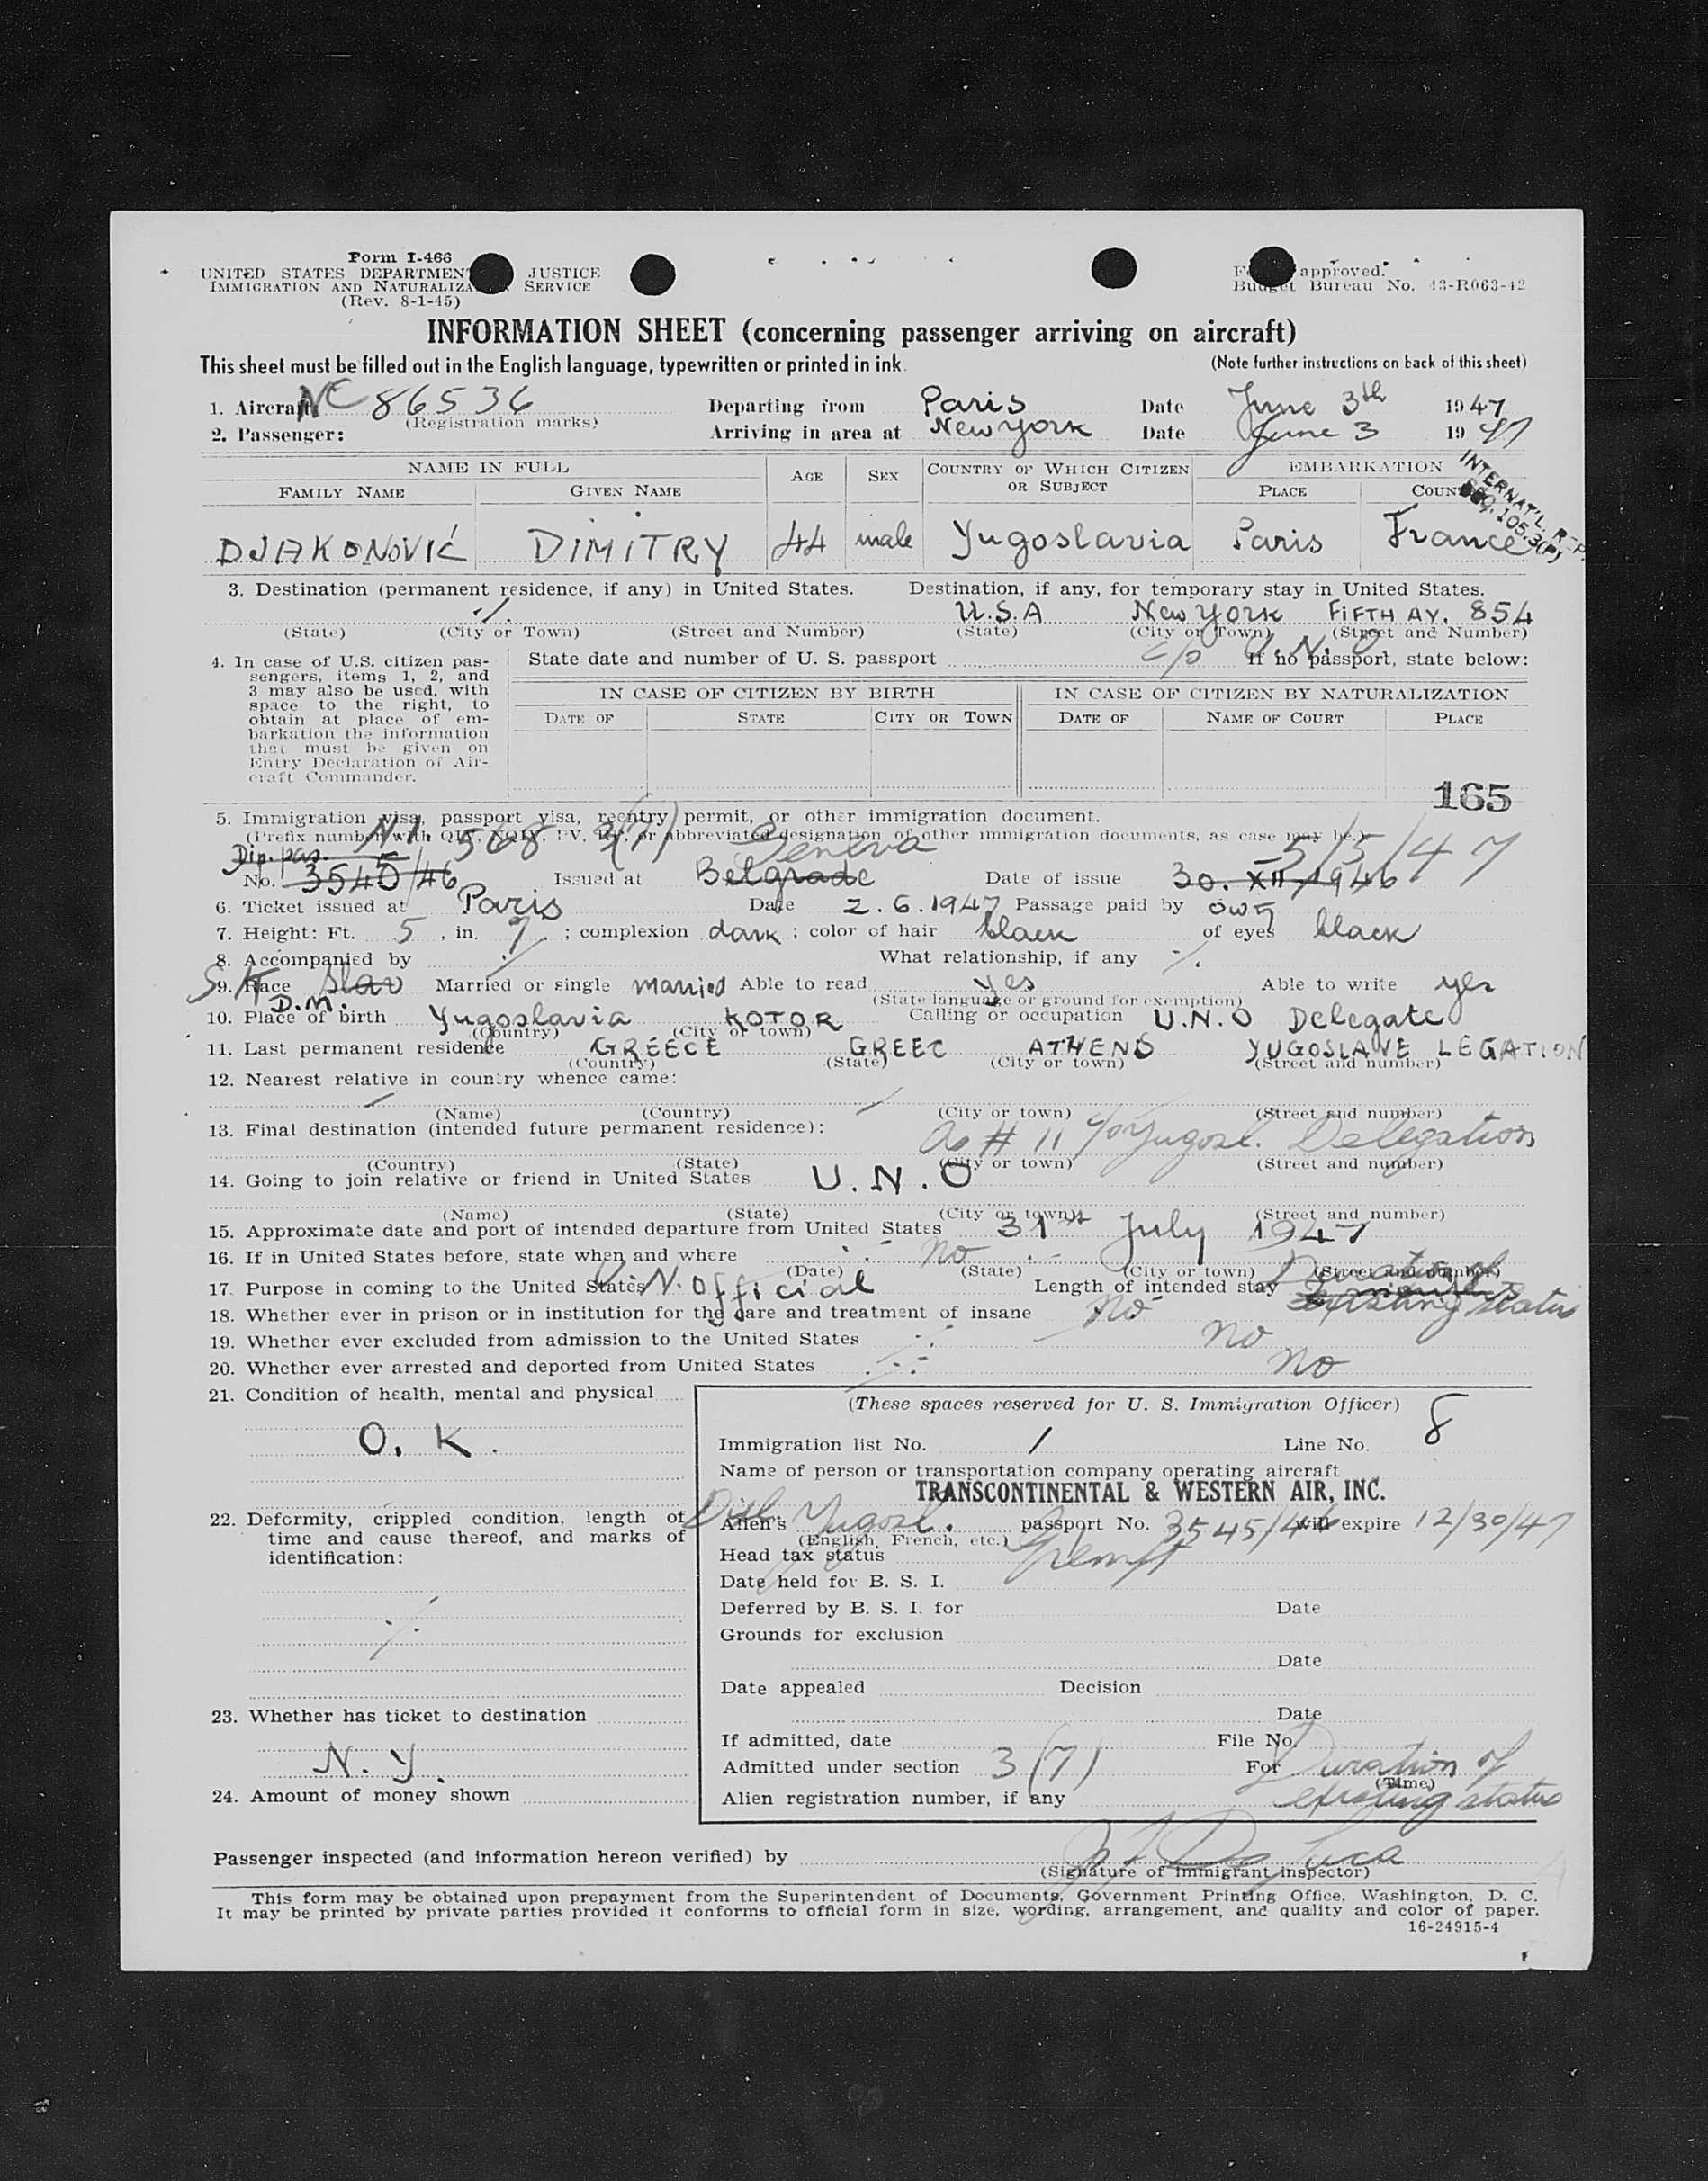 Form I-466
UNITED STATES DEPARTMENT JUSTICE
IMMIGRATION AND NATURALIZA SERVICE
(Rev. 8-1-45)
approved.
Budget Bureau No. 43-R063-42
INFORMATION SHEET (concerning passenger arriving on aircraft)
This sheet must be filled out in the English language, typewritten or printed in ink. (Note further instructions on back of this sheet)
1. Aircraft NC 86536 Departing from Paris Date June 3th 1947
(Registration marks)
2. Passenger: Arriving in area at New York Date June 3 1947
NAME IN FULL AGE SEX COUNTRY OF WHICH CITIZEN OR SUBJECT EMBARKATION
FAMILY NAME GIVEN NAME PLACE COUN
INTERNAT'L.
105.3(P)
DJAKONOVIĆ DIMITRY 44 male Yugoslavia Paris France
3. Destination (permanent residence, if any) in United States. Destination, if any, for temporary stay in United States.
./. U.S.A New York FIFTH AV. 854
(State) (City or Town) (Street and Number) (State) (City or Town) (Street and Number)
c/o U.N.
4. In case of U.S. citizen passengers, items 1, 2, and 3 may also be used, with space to the right, to obtain at place of embarkation the information that must be given on Entry Declaration of Aircraft Commander.
State date and number of U. S. passport If no passport, state below:
IN CASE OF CITIZEN BY BIRTH IN CASE OF CITIZEN BY NATURALIZATION
DATE OF STATE CITY OR TOWN DATE OF NAME OF COURT PLACE
165
5. Immigration visa, passport visa, reentry permit, or other immigration document.
(Prefix number with QIV, NQIV, PV, RP, or abbreviated designation of other immigration documents, as case may be.)
Dip. pas. 568 3(7) Geneva 5/5/47
No. 3545/46 Issued at Belgrade Date of issue 30. XII 1946
6. Ticket issued at Paris Date 2.6.1947 Passage paid by own
7. Height: Ft. 5, in. 9; complexion dark; color of hair black of eyes black
8. Accompanied by ./. What relationship, if any ./.
9. Race Slav Married or single married Able to read yes Able to write yes
(State language or ground for exemption)
D.M.
10. Place of birth Yugoslavia KOTOR Calling or occupation U.N.O Delegate
(Country) (City or town)
11. Last permanent residence GREECE GREEC ATHENS YUGOSLAVE LEGATION
(Country) (State) (City or town) (Street and number)
12. Nearest relative in country whence came:
(Name) (Country) (City or town) (Street and number)
13. Final destination (intended future permanent residence): As # 11 c/o Yugosl. Delegation
(Country) (State) (City or town) (Street and number)
14. Going to join relative or friend in United States U.N.O
(Name) (State) (City or town) (Street and number)
15. Approximate date and port of intended departure from United States 31st July 1947
16. If in United States before, state when and where no
(Date) (State) (City or town) (Street and number)
17. Purpose in coming to the United States U.N. Official Length of intended stay Duration of existing status
18. Whether ever in prison or in institution for the care and treatment of insane no
19. Whether ever excluded from admission to the United States no
20. Whether ever arrested and deported from United States no
21. Condition of health, mental and physical
O. K.
22. Deformity, crippled condition, length of time and cause thereof, and marks of identification:
./.
23. Whether has ticket to destination
N. Y.
24. Amount of money shown
(These spaces reserved for U. S. Immigration Officer)
Immigration list No. 1 Line No. 8
Name of person or transportation company operating aircraft
TRANSCONTINENTAL & WESTERN AIR, INC.
Alien's Yugosl. passport No. 3545/46 will expire 12/30/47
(English, French, etc.)
Head tax status Exempt
Date held for B. S. I.
Deferred by B. S. I. for Date
Grounds for exclusion
Date
Date appealed Decision
Date
If admitted, date File No.
Admitted under section 3(7) For Duration of existing status
(Time)
Alien registration number, if any
Passenger inspected (and information hereon verified) by
(Signature of immigrant inspector)
This form may be obtained upon prepayment from the Superintendent of Documents, Government Printing Office, Washington, D. C.
It may be printed by private parties provided it conforms to official form in size, wording, arrangement, and quality and color of paper.
16-24915-4